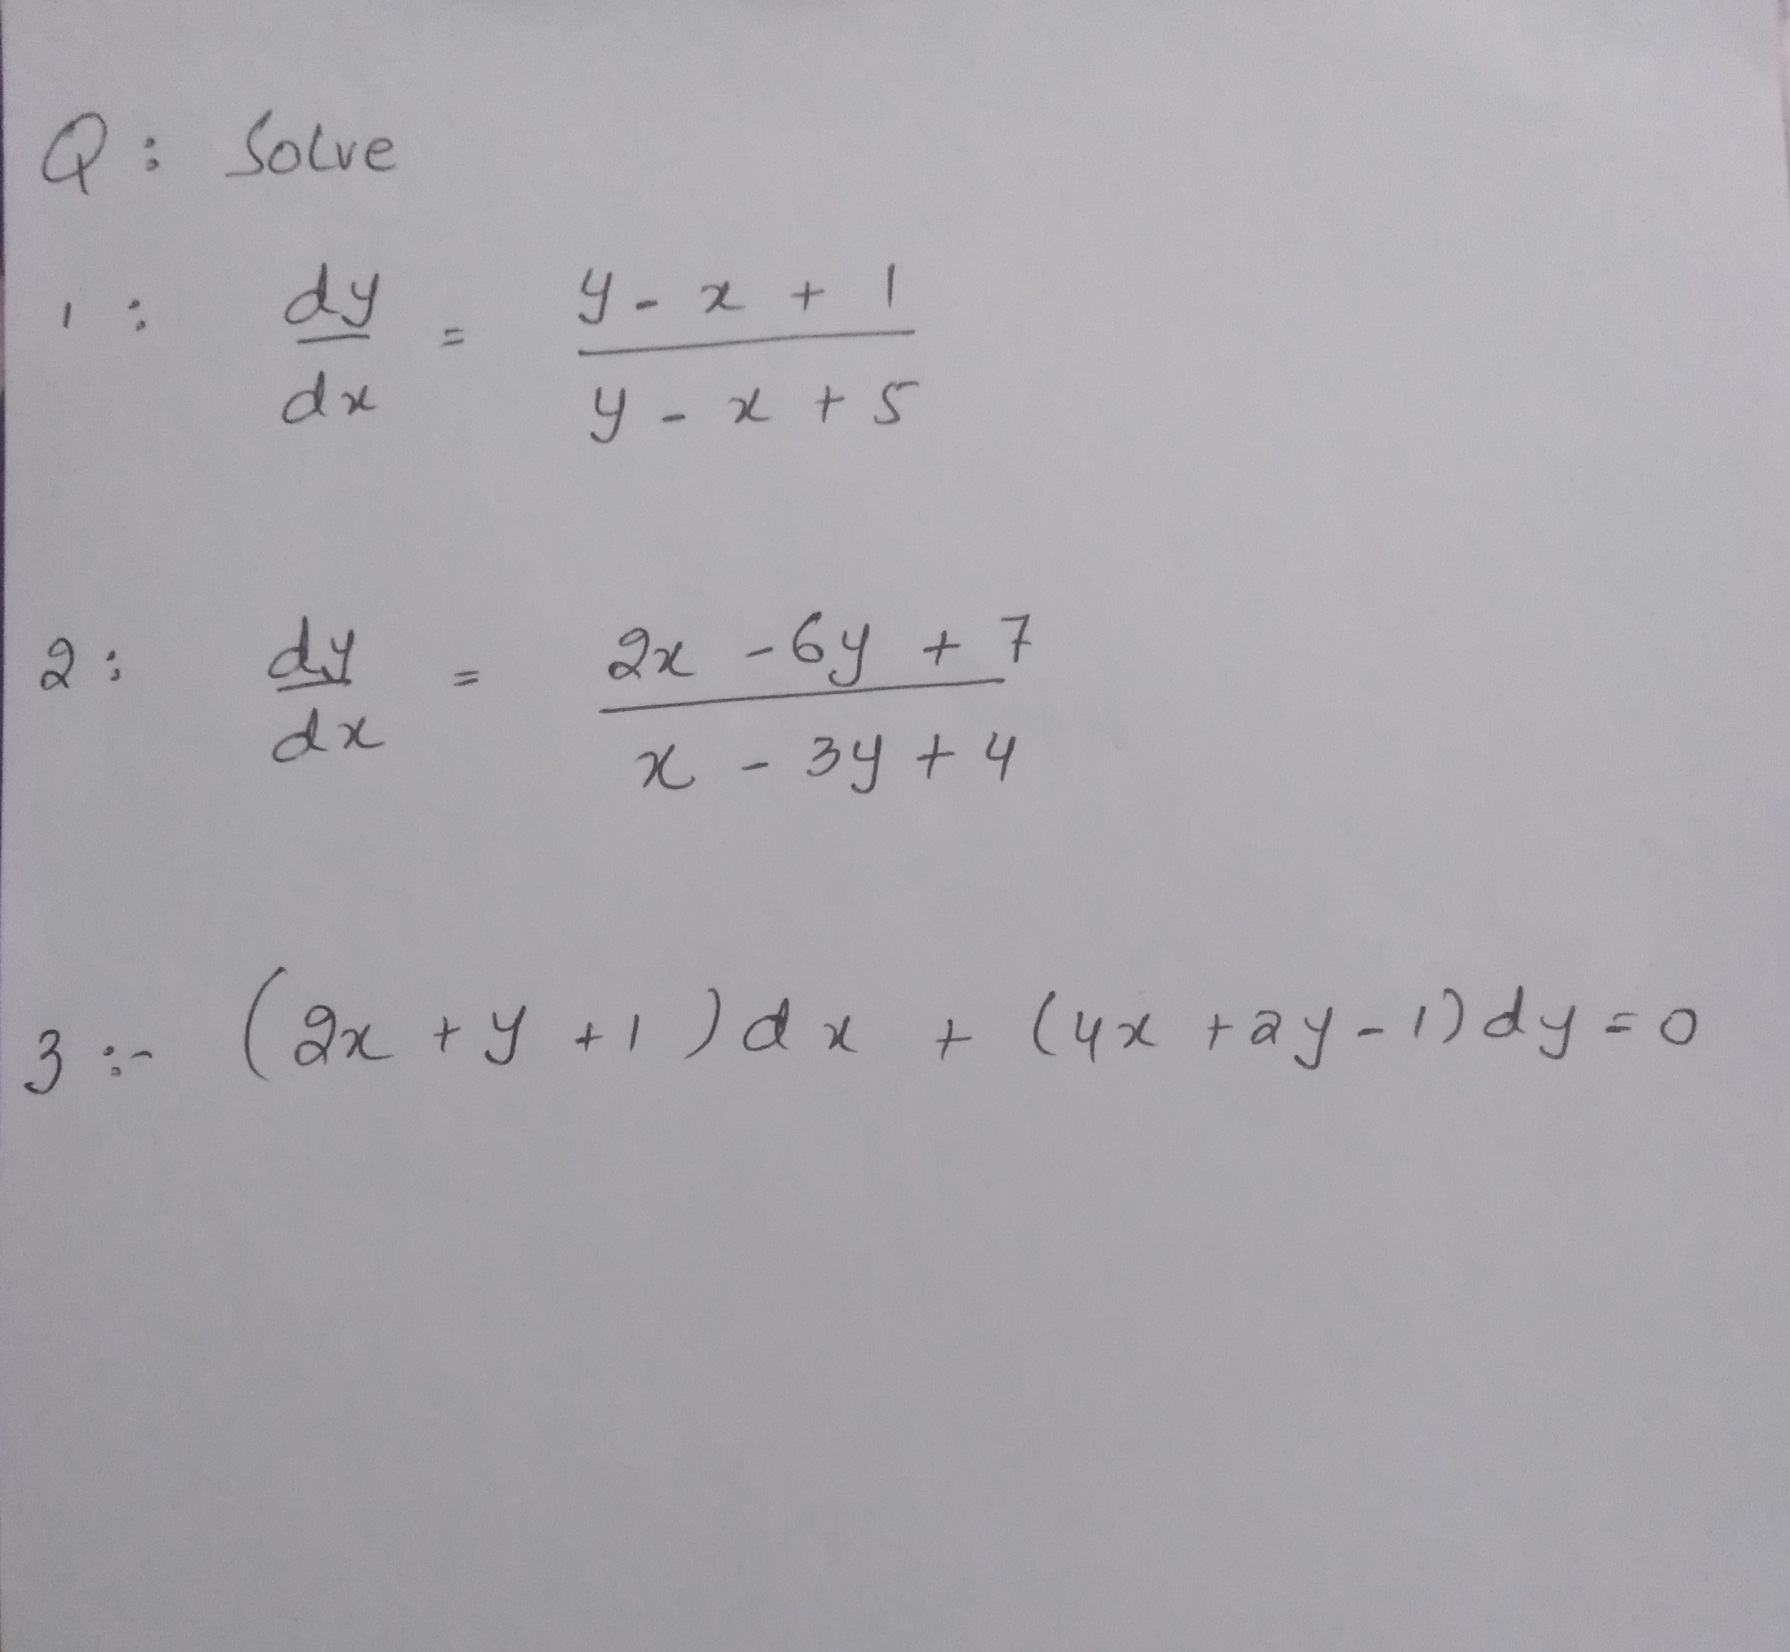 Q: Solve
1: dy/dx = y - x + 1 / y - x + 5
2: dy/dx = 2x - 6y + 7 / x - 3y + 4
3:- (2x + y + 1) dx + (4x + 2y - 1) dy = 0